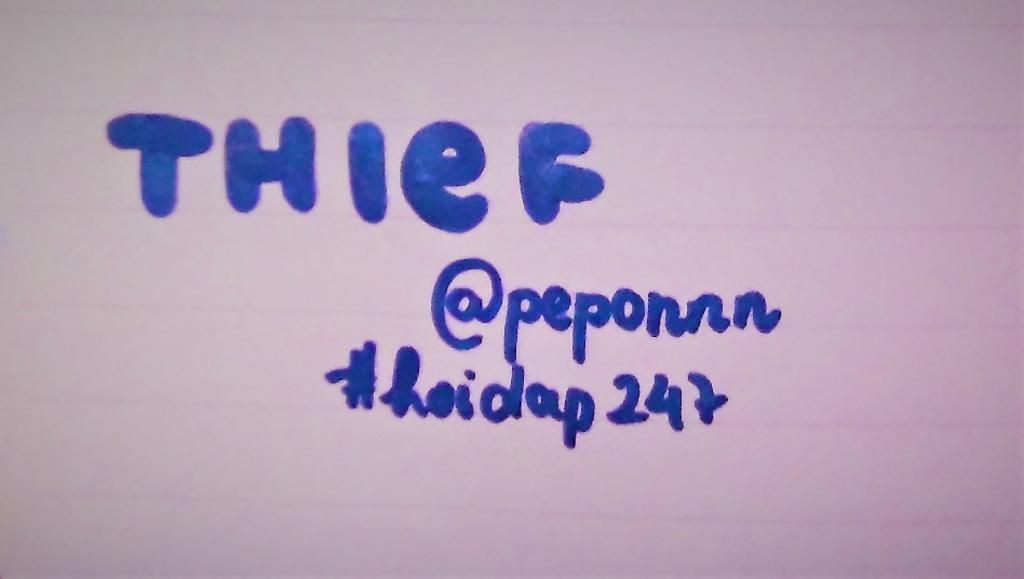 THIeF
@peponnn
#hoidap247